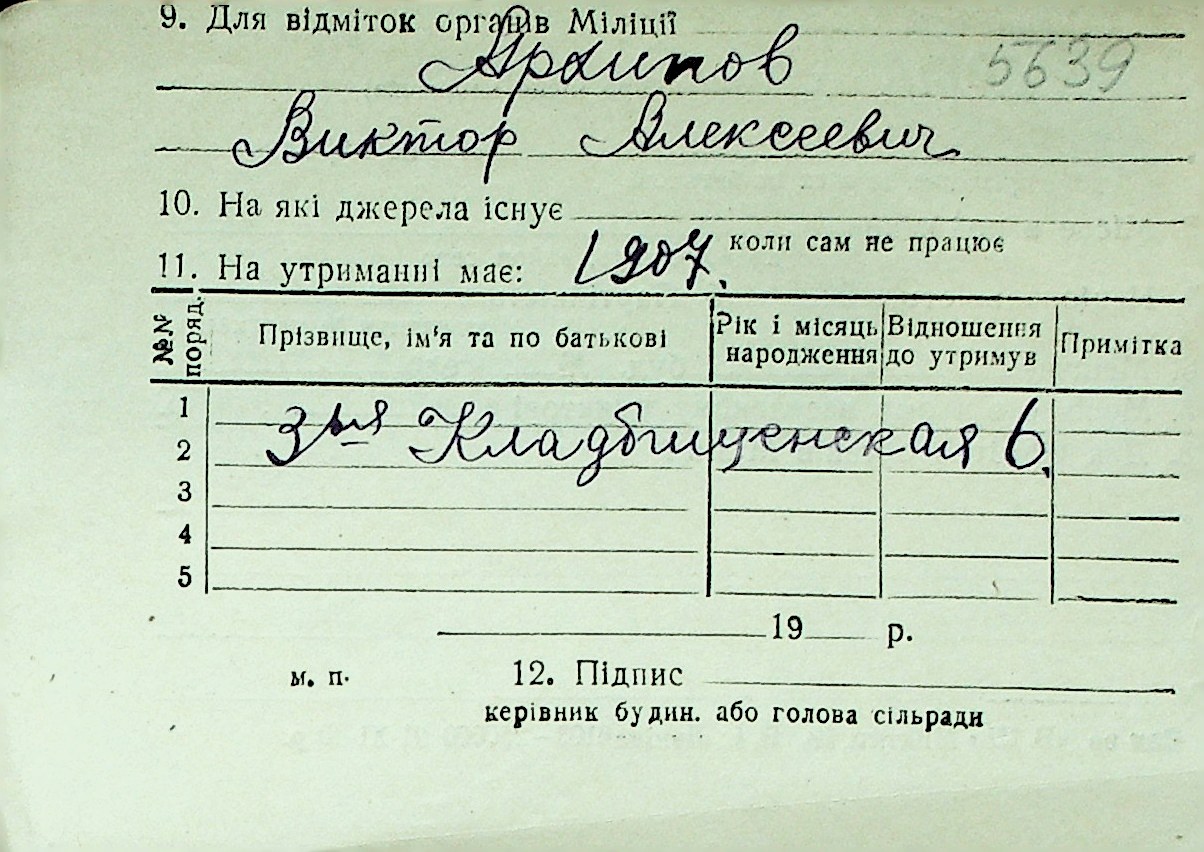 9. Для відміток органів Міліції
Архипов 5639
Виктор Алексеевич
10. На які джерела існує
коли сам не працює
11. На утриманні має: 1907.
№№ поряд. Прізвище, ім'я та по батькові Рік і місяць народження Відношення до утримув Примітка
1
3ья Кладбищенская 6.
2
3
4
5
19 р.
м. п. 12. Підпис
керівник будин. або голова сільради